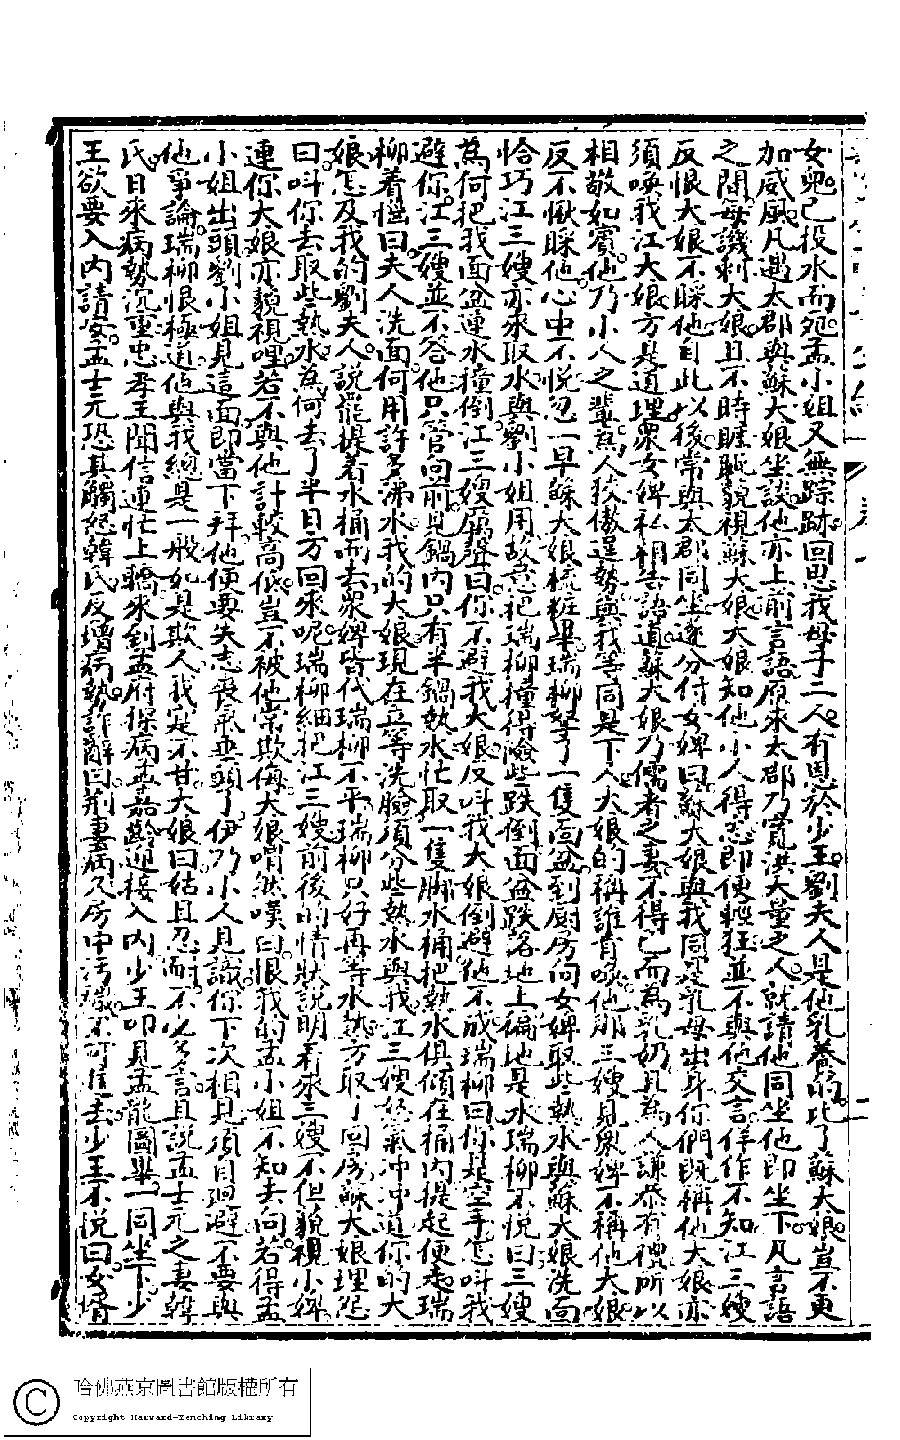 女兒已投水而死孟小姐又無踪跡回思我母子二人有恩於少王劉夫人是他乳養的比了蘇大娘豈不更
加威風凡遇太郡與蘇大娘坐談他亦上前言語原來太郡乃寬洪大量之人就請他同坐他即坐下凡言語
之間每譏刺大娘且不時睚眦藐視蘇大娘大娘知他小人得志即便輕狂並不與他交言佯作不知江三嫂
反恨大娘不睬他自此以後常與太郡同坐遂分付女婢曰蘇大娘與我同是乳母出身你們既稱他大娘亦
須喚我江大娘方是道理衆女婢私相告語道蘇大娘乃儒者之妻不得已而為乳奶且為人謙恭有禮所以
相敬如賓他乃小人之輩為人狡傲逞勢與我等同是下人大娘的稱誰肯喚他那三嫂見衆婢不稱他大娘
反不愀睬他心中不悅忽一早蘇大娘梳粧畢瑞柳拏了一隻面盆到厨房向女婢取些熱水與蘇大娘洗面
恰巧江三嫂亦來取水與劉小姐用故意把瑞柳撞得險些跌倒面盆跌落地上徧地是水瑞柳不悅曰三嫂
為何把我面盆連水撞倒江三嫂厲聲曰你不避我大娘反叫我大娘倒避他不成瑞柳曰你是空手怎叫我
避你江三嫂並不答他只管向前見鍋內只有半鍋熱水忙取一隻脚水桶把熱水俱傾在桶內提起便走瑞
柳着惱曰夫人洗面何用許多沸水我的大娘現在立等洗臉須分些熱水與我江三嫂怒氣冲冲道你的大
娘怎及我的劉夫人說罷提着水桶而去衆婢皆代瑞柳不平瑞柳只好再等水熱方取了回房蘇大娘埋怨
曰叫你去取些熱水為何去了半日方回來呢瑞柳細把江三嫂前後的情狀說明看來三嫂不但藐視小婢
連你大娘亦藐視哩若不與他計較高低豈不被他常欺侮大娘喟然嘆曰恨我的孟小姐不知去向若得孟
小姐出頭劉小姐見這面即當下拜他便要失志喪氣垂頭了伊乃小人見識你下次相見須自迴避不要與
他爭論瑞柳恨極道他與我總是一般如是欺人我是不甘大娘曰姑且忍耐不必多言且說孟士元之妻韓
氏日來病勢沉重忠孝王聞信連忙上轎來到孟府探病孟嘉齡迎接入內少王叩見孟龍圖畢一同坐下少
王欲要入內請安孟士元恐其觸怒韓氏反增病勢詐辭曰荊妻病久房中污穢不可進去少王不悅曰女壻
哈佛燕京圖書館版權所有
Copyright Harvard-Yenching Library